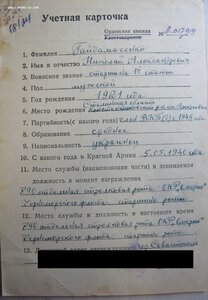 Учетная карточка
Орденская книжка
Удостоверение
1. Фамилия Гайдамаченко
2. Имя и отчество Николай Александрович
3. Воинское звание старшина 1й статьи
4. Пол мужской
5. Год рождения 1921 года
6. Место рождения Сталинская область
7. Партийность (с какого года) член ВКП(б) с 1946 год
8. Образование среднее
9. Национальность украинец
10. С какого года в Красной Армии 5.05.1940 года
11. Место службы и занимаемая
должность в момент награждения
стрелковая рота
Черноморского флота: старшина роты
12. Место службы и должность в настоящее время
стрелковая рота
Черноморского флота: старшина роты
награжденного гор. Севастополь